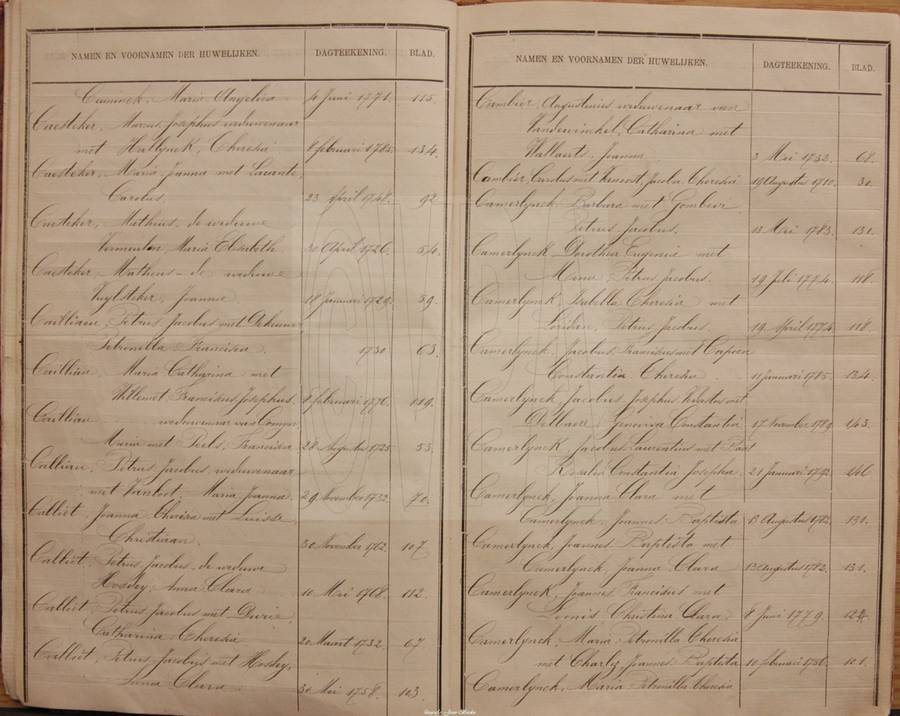 NAMEN EN VOORNAMEN DER HUWELIJKEN. DAGTEEKENING. BLAD.
Maria Angelica Juni 1771. 115.
Caesteker, Marius Josephus weduwenaar
met Hallynck, Theresia 8 februari 1785. 134.
Caesteker, Maria Joanna met
Carolus. 23 April 1768. 92
Caesteker, Matheus, de weduwe
Vermeulen Maria Elisabeth. 30 April 1726. 54.
Caesteker, Matheus de weduwe
Vuylsteker, Joanna 18 Januari 1720. 39.
Cailliau, Petrus Jacobus met
Petronilla Francisca. 1730 63.
Cailliau, Maria Catharina met
Willemet Franciscus Josephus. 8 februari 1776. 119.
Cailliau weduwenaar van
Maria met Peels, Francisca 28 Augustus 1725 53.
Calliau, Petrus Jacobus weduwenaar
met Maria Joanna. 29 November 1732. 70.
Calliet, Joanna Theresia met
Christiaan. 30 November 1762. 107
Calliet, Petrus Jacobus de weduwe
Hosdey, Anna Clara 10 Mei 1768. 112.
Calliet, Petrus Jacobus met
Catharina Theresia 20 Maart 1732. 67
Calliet, Petrus Jacobus met Hosdey,
Anna Clara 30 Mei 1758. 103.
NAMEN EN VOORNAMEN DER HUWELIJKEN. DAGTEEKENING. BLAD.
Cambier, Augustinus weduwenaar van
Vandewinckel, Catharina met
Wallaert, Joanna 3 Mei 1732. 68.
Cambier, Carolus met Jacoba Theresia 19 Augustus 1710. 30.
Camerlynck, Barbara met
Petrus Jacobus. 13 Mei 1783. 131.
Camerlynck Dorothea Eugenia met
Petrus Jacobus. 19 Juli 1774. 118.
Camerlynck, Isabella Theresia met
Loridan, Petrus Jacobus. 19 April 1774 118.
Camerlynck, Jacobus Franciscus met
Constantia Theresia. 11 Januari 1785. 134.
Camerlynck Jacobus Josephus met
Delbaere Genoveva Constantia 17 November 1789 143.
Camerlynck Jacobus Laurentius met
Rosalia Constantia Josepha. 21 Januari 1792 146
Camerlynck, Joanna Clara met
Camerlynck, Joannes Baptista 13 Augustus 1782. 131.
Camerlynck, Joannes Baptista met
Camerlynck, Joanna Clara 13 Augustus 1782. 131.
Camerlynck, Joannes Franciscus met
Christina Clara. 8 Juni 1779.
Camerlynck, Maria Petronilla Theresia
met Charley Joannes Baptista 10 februari 1756. 101.
Camerlynck, Maria Petronilla Theresia